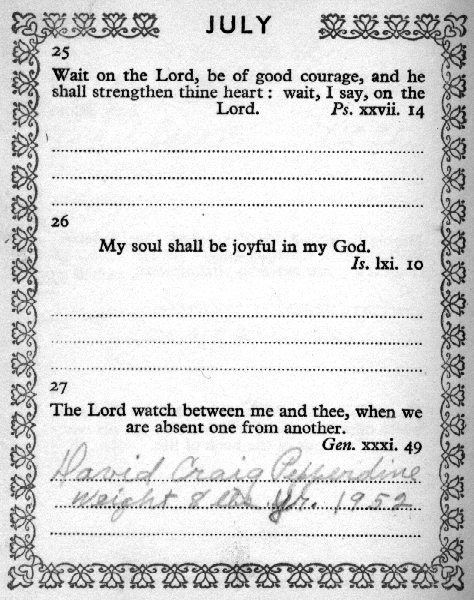 JULY
25
Wait on the Lord, be of good courage, and he
shall strengthen thine heart : wait, I say, on the
Lord. Ps. xxvii. 14
26
My soul shall be joyful in my God.
Is. lxi. 10
27
The Lord watch between me and thee, when we
are absent one from another.
Gen. xxxi. 49
David Craig Pepperdine
Weight 8 lbs Yr. 1952